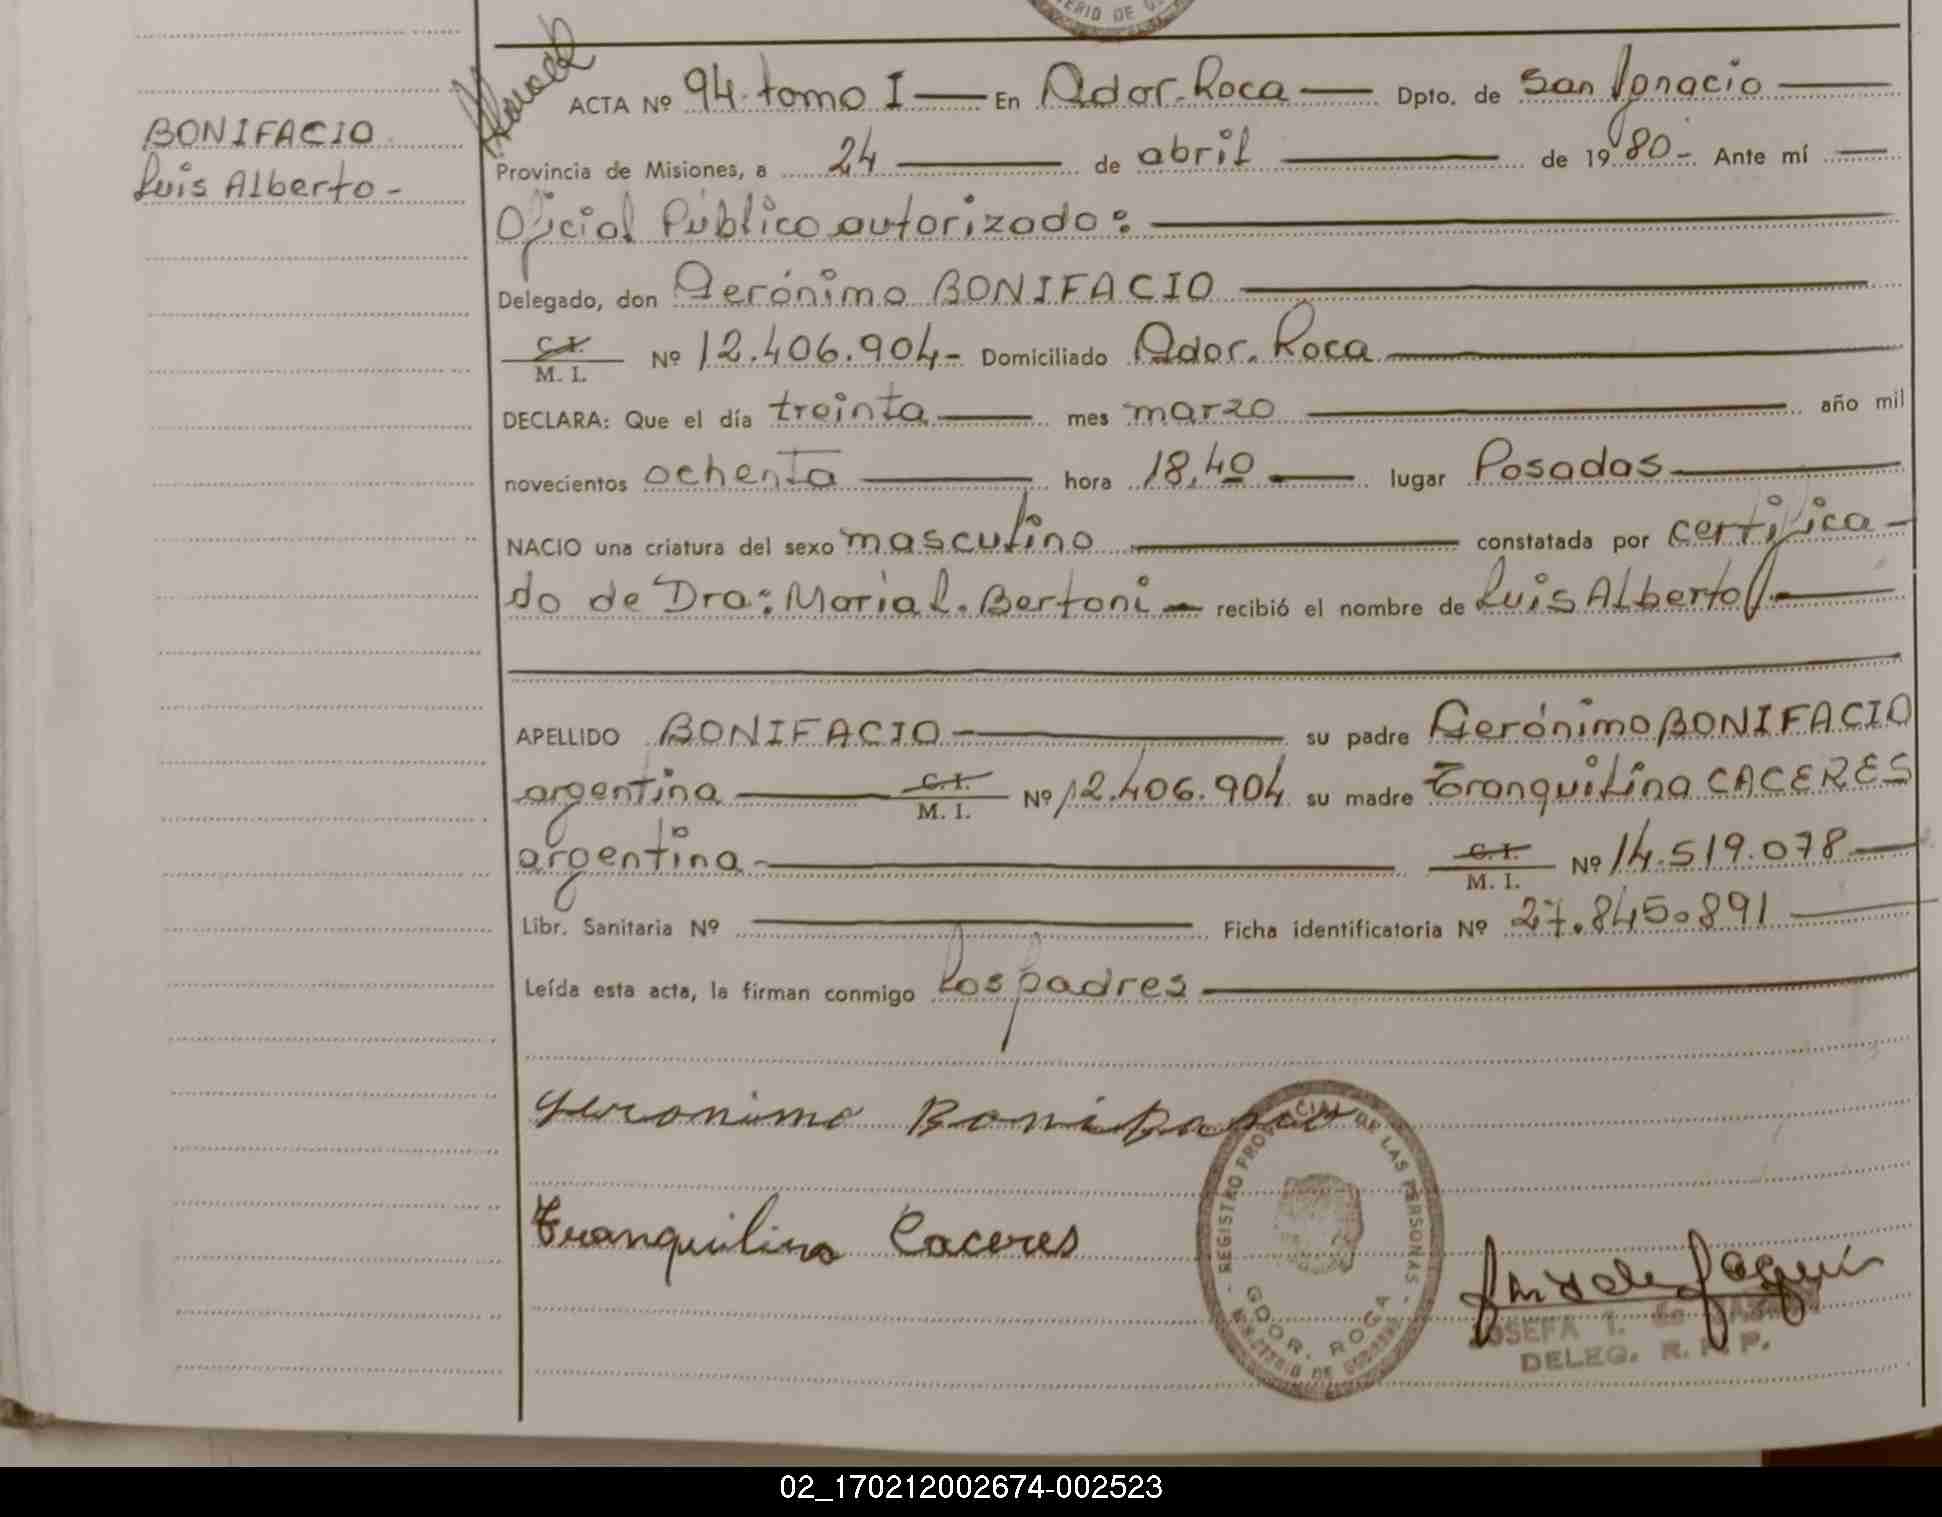 ERIO DE G
BONIFACIO
Luis Alberto -
ACTA Nº 94 tomo I — En Gdor. Roca — Dpto. de San Ignacio —
Provincia de Misiones, a 24 — de abril — de 1980 - Ante mí —
Oficial Público autorizado: —
Delegado, don Gerónimo BONIFACIO —
C. I.
M. I. Nº 12.406.904 - Domiciliado Gdor. Roca —
DECLARA: Que el día treinta — mes marzo — año mil
novecientos ochenta — hora 18,40 — lugar Posadas —
NACIO una criatura del sexo masculino — constatada por certifica-
do de Dra: Maria L. Bertoni — recibió el nombre de Luis Alberto —
APELLIDO BONIFACIO — su padre Gerónimo BONIFACIO
argentina — C. I.
M. I. Nº 12.406.904 su madre Tranquilina CACERES
argentina — C. I.
M. I. Nº 14.519.078 —
Libr. Sanitaria Nº — Ficha identificatoria Nº 27.845.891 —
Leída esta acta, la firman conmigo los padres —
Geronimo Bonifacio
Tranquilina Caceres
REGISTRO PROVINCIAL DE LAS PERSONAS
GDOR. ROCA
MINISTERIO DE GOBIERNO
JOSEFA I. de
DELEG. R. P. P.
02_170212002674-002523